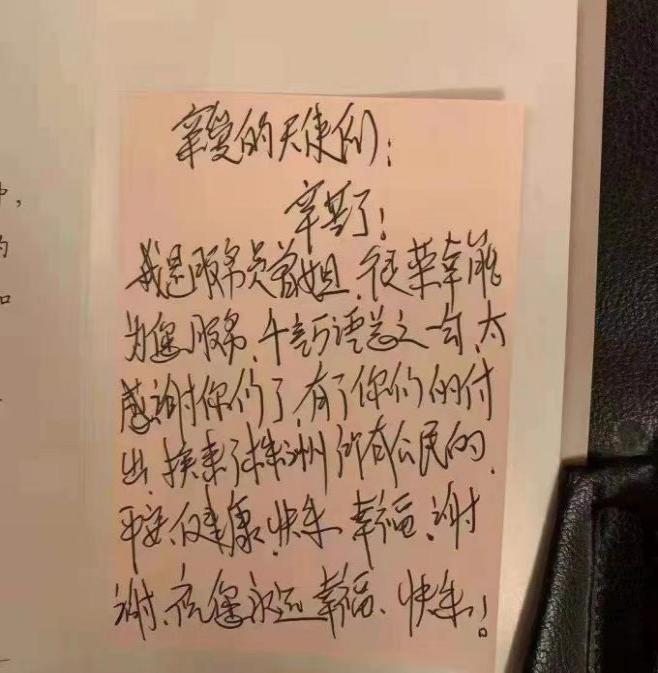 亲爱的天使们：
辛苦了！
我是服务员曾姐，很荣幸能
为您服务，千言万语总之一句，太
感谢你们了，有了你们的付
出，换来了株洲所有公民的，
平安、健康、快乐、幸福、谢
谢、祝您永远幸福、快乐！
中，
的
和